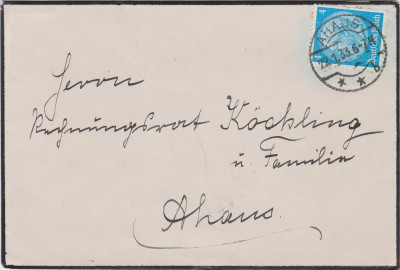 4
Deutsches Reich
AHAUS
22.1.33.6-7N
Herrn
Rechnungsrat Köckling
u. Familie
Ahaus.